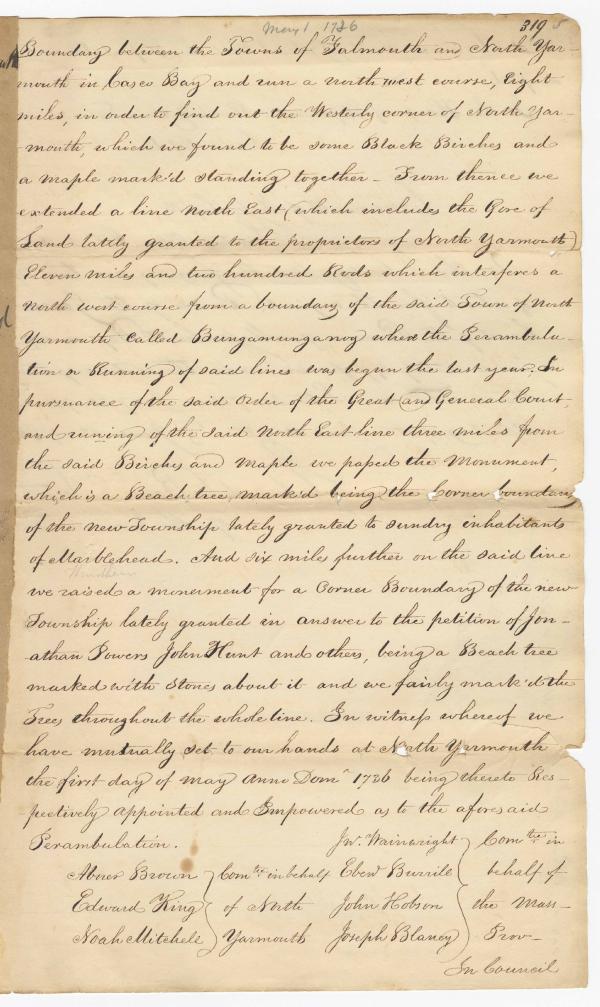 May 1 1736
319 5
Boundary between the Towns of Falmouth and North Yar-
mouth in Casco Bay and run a north west course, Eight
miles, in order to find out the Westerly corner of North Yar-
-mouth, which we found to be some Black Birches and
a Maple mark'd standing together - From thence we
extended a line North East (which includes the Gore of
Land lately granted to the proprietors of North Yarmouth)
Eleven miles and two hundred Rods which interferes a
north west course from a boundary of the said Town of North
Yarmouth called Bungamunganog where the Perambula-
tion or Running of said lines was begun the last year. In
pursuance of the said Order of the Great and General Court,
and runing of the said North East line three miles from
the said Birches and Maple we passed the Monument,
which is a Beach tree, mark'd being the Corner boundary
of the new Township lately granted to sundry inhabitants
of Marblehead. And six mile further on the said line
we raised a monument for a Corner Boundary of the new
Township lately granted in answer to the petition of Jon-
athan Powers John Hunt and others, being a Beach tree
marked with Stones about it and we fairly mark'd the
Trees throughout the whole line. In witness whereof we
have mutually set to our hands at North Yarmouth
the first day of May Anno Dom 1736 being thereto Res-
pectively appointed and Impowered as to the aforesaid
Perambulation. Jno. Wainwright Comtee in
Abner Brown Comtee in behalf Ebenr Burrill behalf of
Edward King of North John Hobson the Mass-
Noah Mitchell Yarmouth Joseph Blaney Prov-
In Council